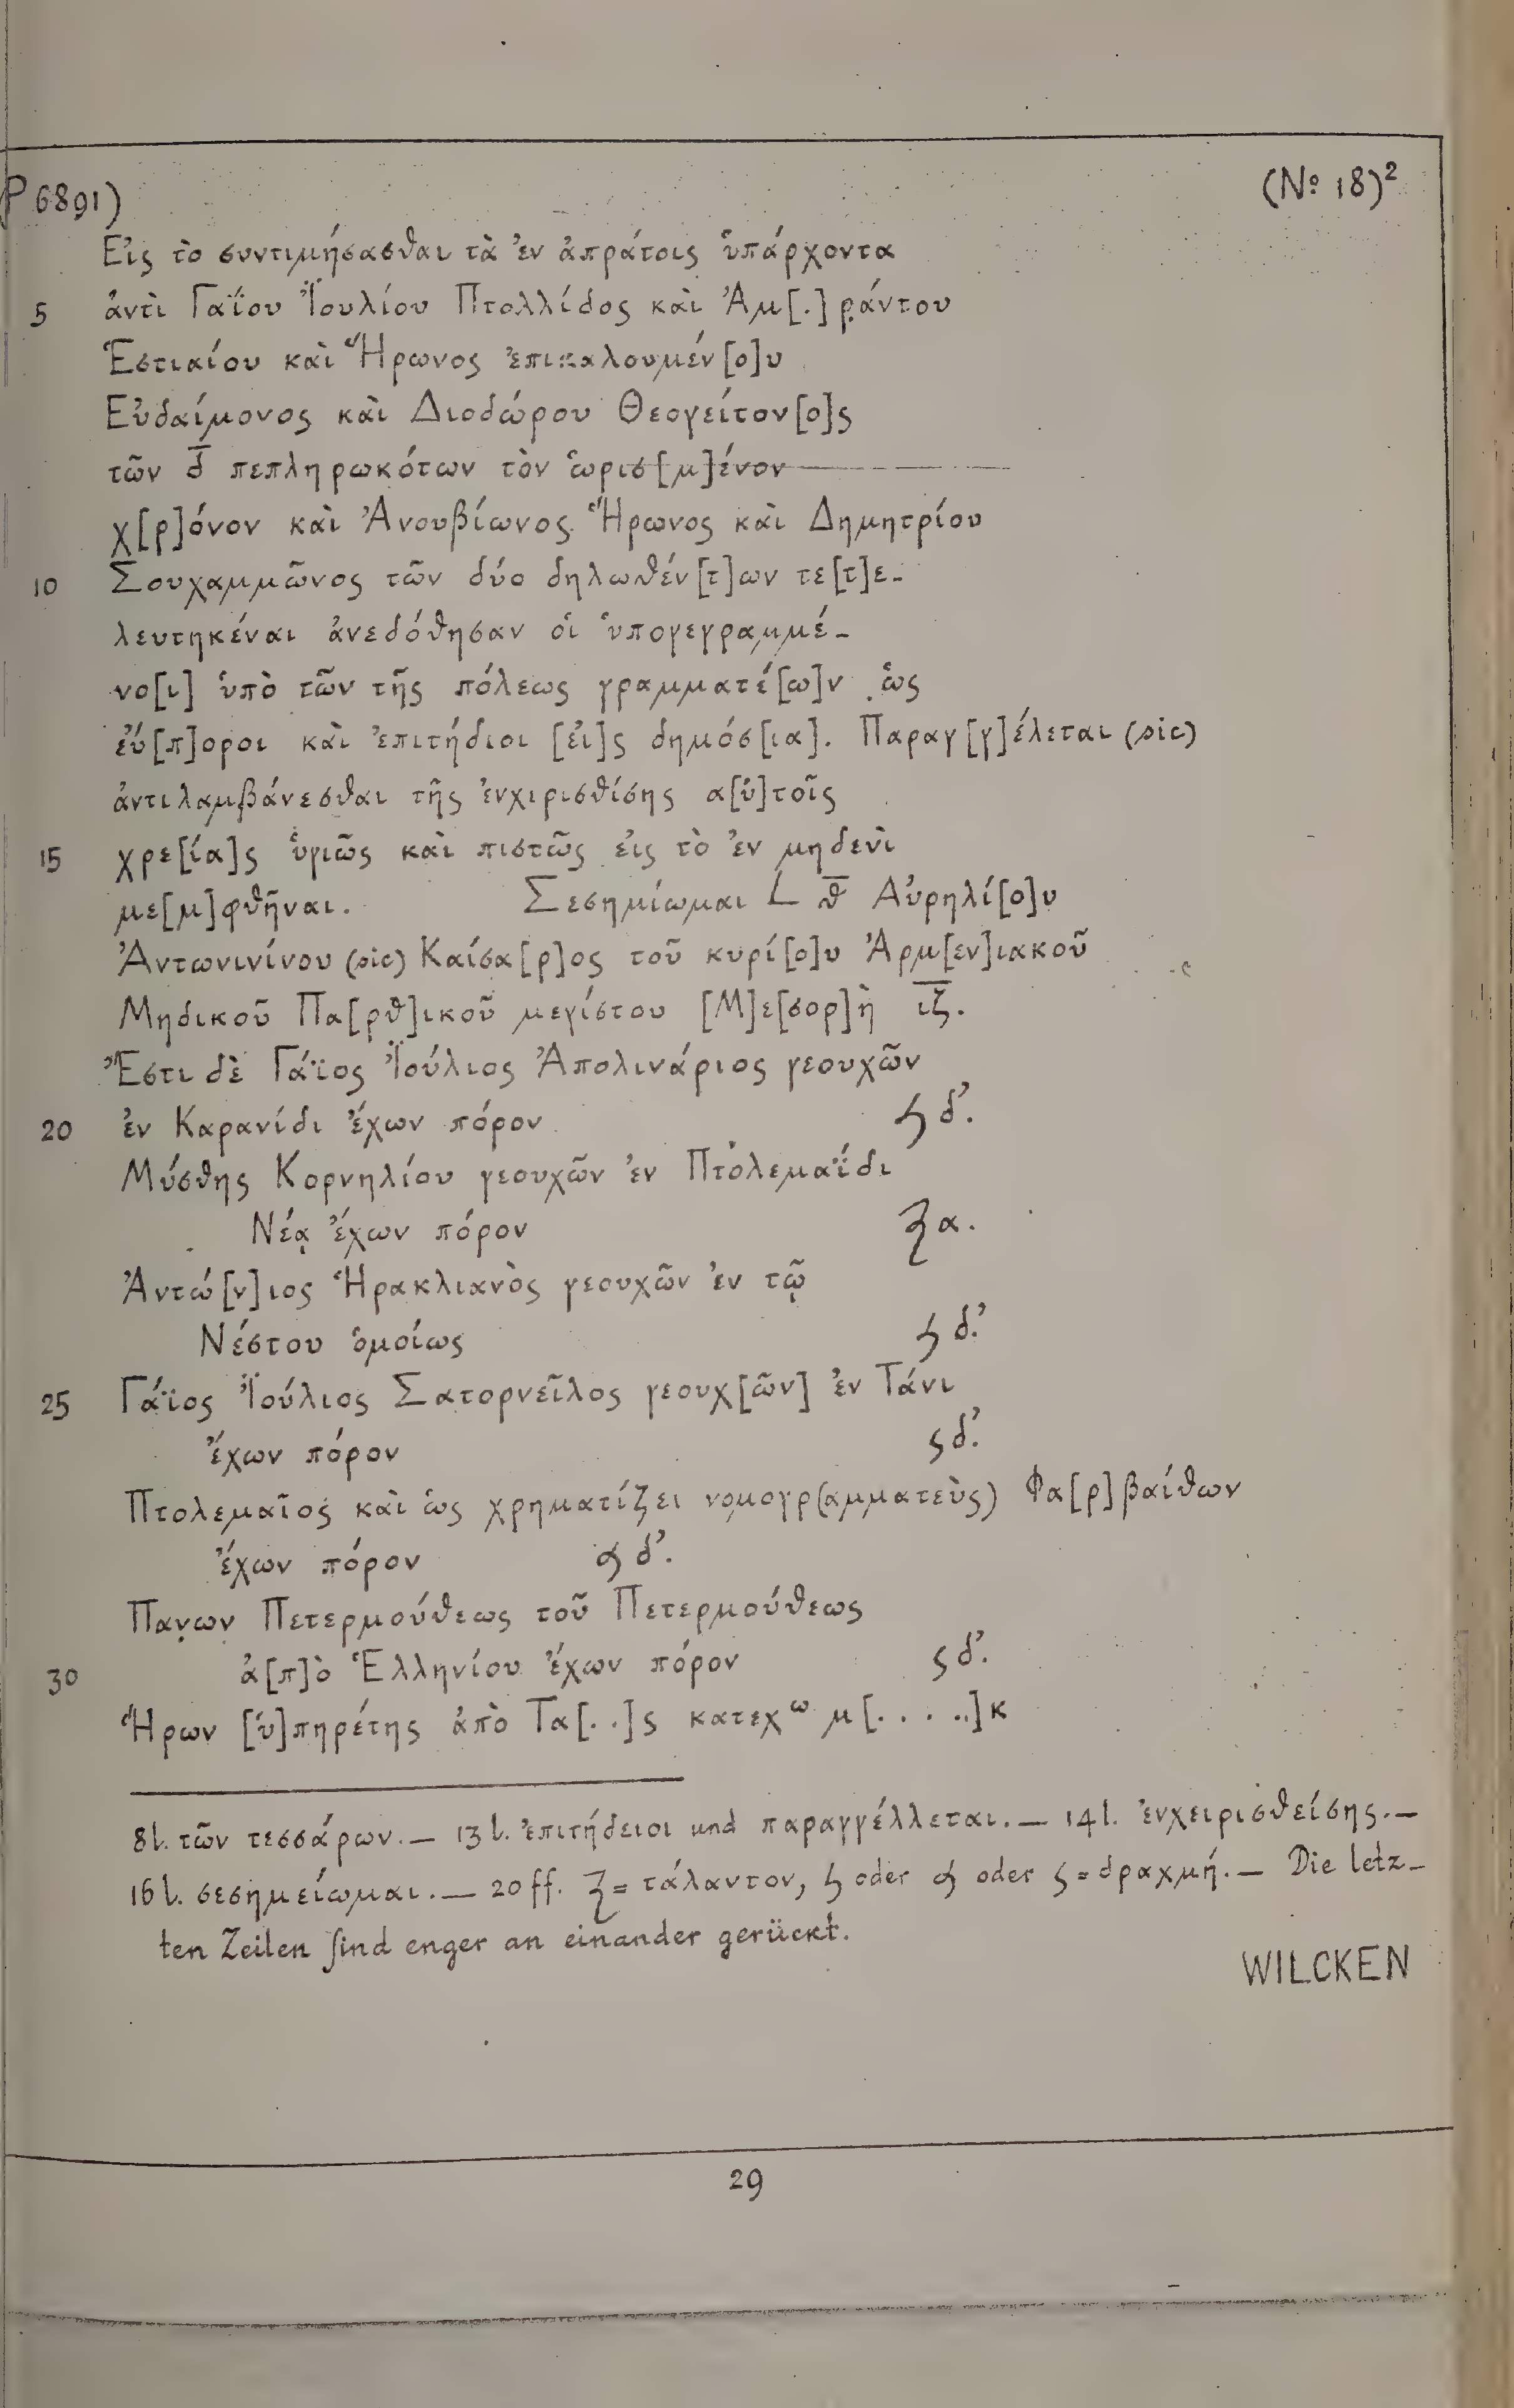 (P 6891) (Nº 18)²
Εἰς τὸ συντιμήσασθαι τὰ ἐν ἀπράτοις ὑπάρχοντα
5 ἀντὶ Γαΐου Ἰουλίου Πτολλίδος καὶ Ἀμ[.]ρ̣άντου
Ἑστιαίου καὶ Ἥρωνος ἐπικαλουμέν[ο]υ
Εὐδαίμονος καὶ Διοδώρου Θεογείτον[ο]ς
τῶν δ̅ πεπληρωκότων τὸν ὡρισ[μ]ένον
χ[ρ]όνον καὶ Ἀνουβίωνος Ἥρωνος καὶ Δημητρίου
10 Σουχαμμῶνος τῶν δύο δηλωθέν[τ]ων τε[τ]ε-
λευτηκέναι ἀνεδόθησαν οἱ ὑπογεγραμμέ-
νο[ι] ὑπὸ τῶν τῆς πόλεως γραμματέ[ω]ν ὡς
εὔ[π]οροι καὶ ἐπιτήδιοι [εἰ]ς δημόσ[ια]. Παραγ[γ]έλεται (sic)
ἀντιλαμβάνεσθαι τῆς ἐνχιρισθίσης α[ὐ]τοῖς
15 χρε[ία]ς ὑγιῶς καὶ πιστῶς εἰς τὸ ἐν μηδενὶ
με[μ]φθῆναι. Σεσημίωμαι L θ̅ Αὐρηλί[ο]υ
Ἀντωνινίνου (sic) Καίσα[ρ]ος τοῦ κυρί[ο]υ Ἀρμ[εν]ιακοῦ
Μηδικοῦ Πα[ρθ]ικοῦ μεγίστου [Μ]ε[σορ]ὴ ι̅ζ̅.
Ἔστι δὲ Γάϊος Ἰούλιος Ἀπολινάριος γεουχῶν
20 ἐν Καρανίδι ἔχων πόρον ϟ δ’.
Μύσθης Κορνηλίου γεουχῶν ἐν Πτολεμαΐδι
Νέᾳ ἔχων πόρον ϡ α.
Ἀντώ[ν]ιος Ἡρακλιανὸς γεουχῶν ἐν τῷ
Νέστου ὁμοίως ϟ δ’.
25 Γάϊος Ἰούλιος Σατορνεῖλος γεουχ[ῶν] ἐν Τάνι
ἔχων πόρον ς δ’.
Πτολεμαῖος καὶ ὡς χρηματίζει νομογρ(αμματεὺς) Φα[ρ]βαίθων
ἔχων πόρον ∝ δ’.
Παν̣ων Πετερμούθεως τοῦ Πετερμούθεως
30 ἀ[π]ὸ Ἑλληνίου ἔχων πόρον ς δ’.
Ἥρων [ὑ]πηρέτης ἀπὸ Τα[..]ς κατεχω μ[.....]κ
8 l. τῶν τεσσάρων. — 13 l. ἐπιτήδειοι und παραγγέλλεται. — 14 l. ἐνχειρισθείσης. —
16 l. σεσημείωμαι. — 20 ff. ϡ = τάλαντον, ϟ oder ∝ oder ς = δραχμή. — Die letz-
ten Zeilen sind enger an einander gerückt.
WILCKEN
29